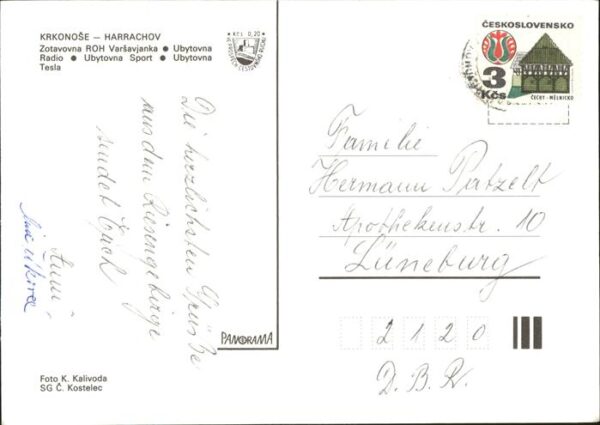 KRKONOŠE – HARRACHOV
Zotavovna ROH Varšavjanka • Ubytovna
Radio • Ubytovna Sport • Ubytovna
Tesla
Kčs 0,20
ČESKOSLOVENSKO
3
Kčs
ČECHY - MĚLNICKO
Die herzlichsten Grüsse
aus dem Riesengebirge
sendet Euch
Anni
PANORAMA
Foto K. Kalivoda
SG Č. Kostelec
Familie
Hermann Patzelt
Apothekenstr. 10
Lüneburg
2120
D.B.R.